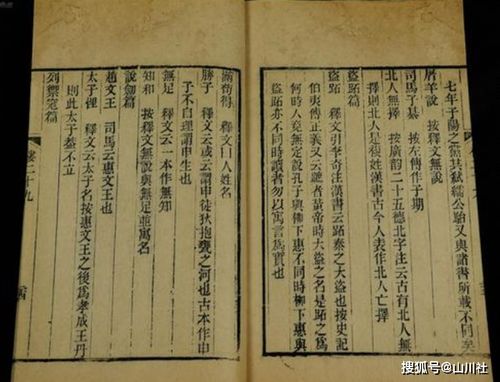 七年子陽之黨共弒繻公駘又與諸書所載不同矣
屠羊說 按釋文無說
司馬子綦 左傳作子期
北人無擇 按廣韻二十五德北字注云古有北人無
擇則北人是複姓漢書古今人表作北人亡擇
盜跖篇
盜跖 釋文引李奇注漢書云跖秦之大盜也按史記
伯夷傳正義又云蹠者黃帝時大盜之名是跖之爲
何時人竟無定說孔子與柳下惠不同時柳下惠與
盜跖亦不同時讀者勿以寓言爲實也
滿苟得 釋文曰人姓名
勝子 釋文云或云謂申徒狄抱甕之河也古本作申
子不自理謂申生也
無足 釋文云一本作無知
知和 按釋文無說與無足並寓名
說劍篇
趙文王 司馬云惠文王也
太子悝 釋文云太子名按惠文王之後爲孝成王丹
則此太子蓋不立
列禦寇篇
卷二十九
搜狐号@山川社